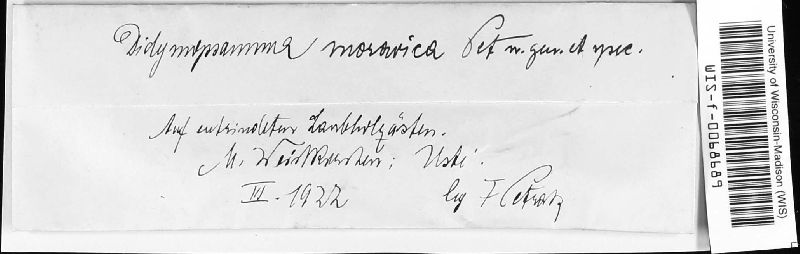 Didymopsamma moravica Pet n. gen. et spec.
Auf entrindeten Laubholzästen.
M. Weisskirchen; Ustí.
III. 1922 leg F Petrak
University of Wisconsin-Madison (WIS)
WIS-f-0068689